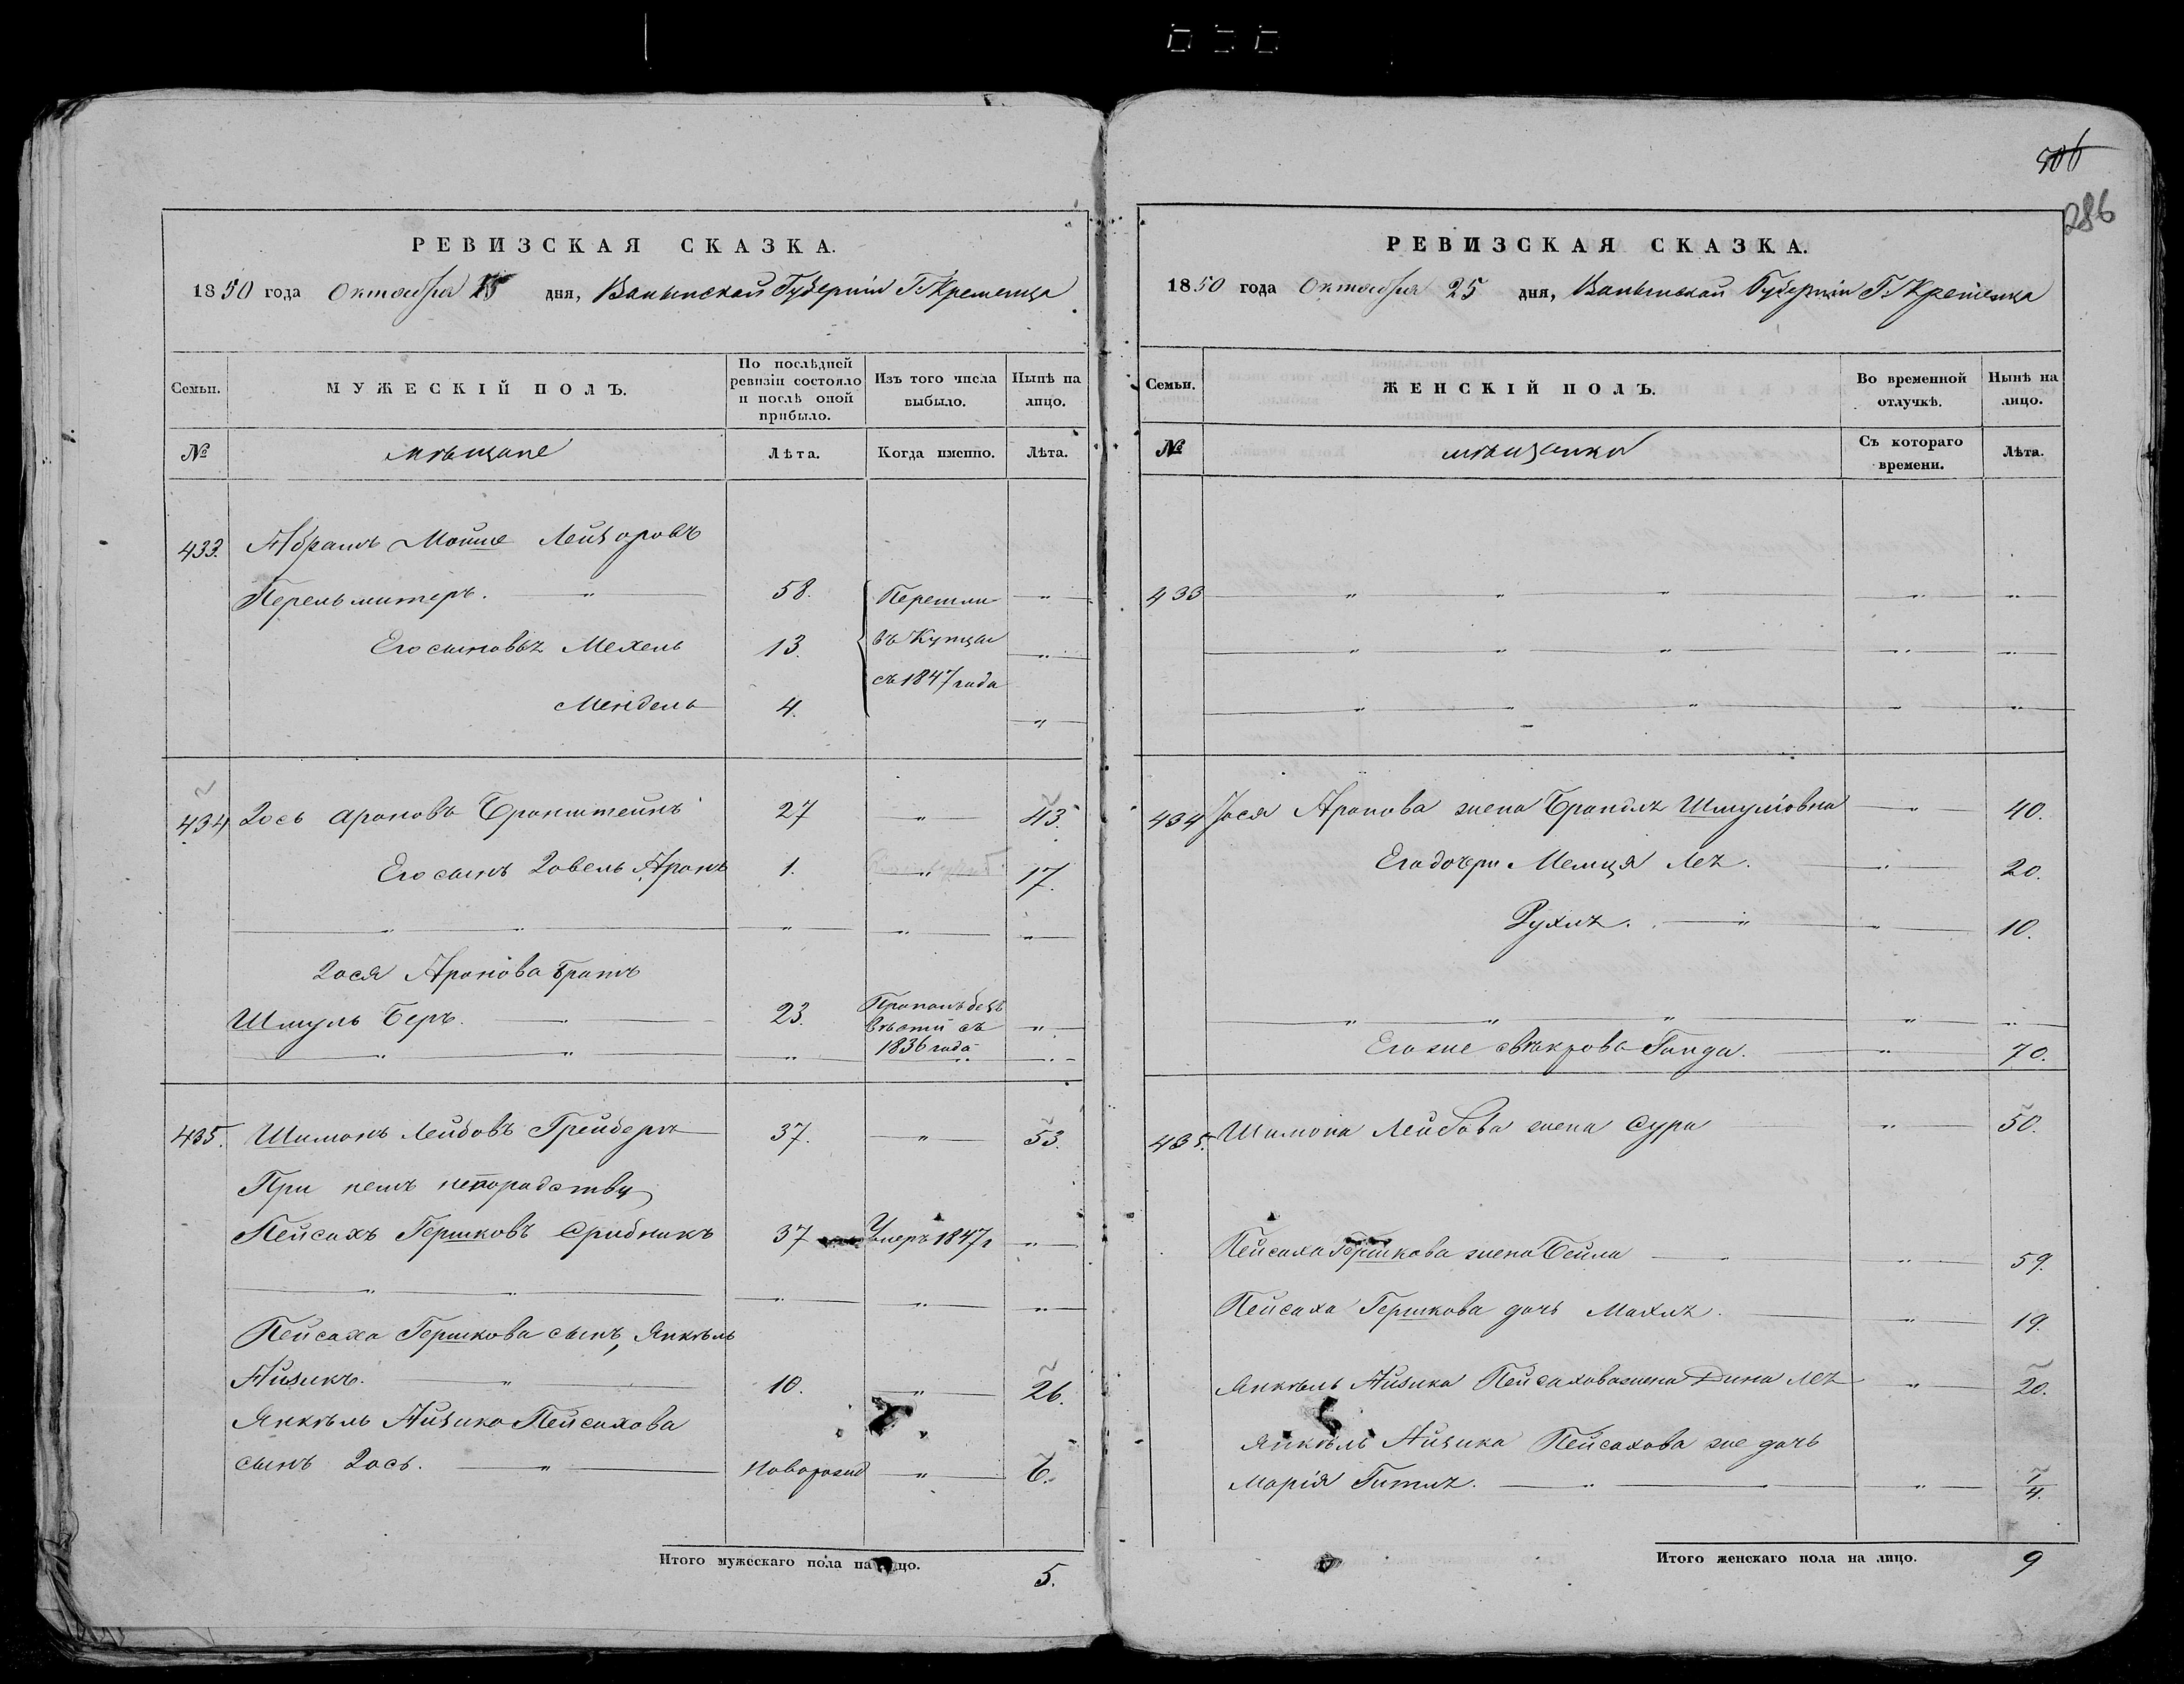 РЕВИЗСКАЯ СКАЗКА.
1850 года Октября 25 дня, Валынской Губерніи Г. Кременца
Семьи.
МУЖЕСКІЙ ПОЛЪ.
По послѣдней ревизіи состояло и послѣ оной прибыло.
Изъ того числа выбыло.
Нынѣ на лицо.
№
мѣщане
Лѣта.
Когда именно.
Лѣта.
433. Абрамъ Мошие Лейзоровъ
Перельмитеръ. " 58. Перешли "
Его сыновья Мехель 13. въ Купцы "
съ 1847 года
Мендель 4. "
434 Зось Ароновъ Бронштейнъ 27 " 43.
Его сынъ Зовель Аронъ 1. " 17.
" " " " "
Зося Аронова братъ
Шмуль Беръ. 23. Пропалъ безъ вѣсти съ 1836 года "
" " " " "
435. Шимонъ Лейбовъ Грейберъ 37. " 53.
При немъ непородству
Пейсахъ Гершковъ Срибникъ 37 Умеръ 1847 г "
" " " " "
Пейсаха Гершкова сынъ, Янкѣль
Айзикъ. " 10. " 26.
Янкѣль Айзика Пейсахова
сынъ Зось. " новорожд " 6.
Итого мужескаго пола на лицо. 5.
506
286
РЕВИЗСКАЯ СКАЗКА.
1850 года Октября 25 дня, Валынской Губерніи Г. Кременца
Семьи.
ЖЕНСКІЙ ПОЛЪ.
Во временной отлучкѣ.
Нынѣ на лицо.
№
мѣщанки
Съ котораго времени.
Лѣта.
433 " " " " "
" " " " "
" " " " "
434 Зося Аронова жена Брандля Шмулiовна " 40.
Его дочери Мемця Лея. " 20.
Рухля. " " 10.
" " " " "
Его же свѣкрова Гинда. " 70.
435. Шимона Лейбова жена Сура " 50.
Пейсаха Гершкова жена Бейла " " 59.
Пейсаха Гершкова дочь Махля. " 19.
Янкѣль Айзика Пейсахова жена Дина Лея " 20.
Янкѣль Айзика Пейсахова же дочь
Марія Гитля. " " 1/4.
Итого женскаго пола на лицо. 9